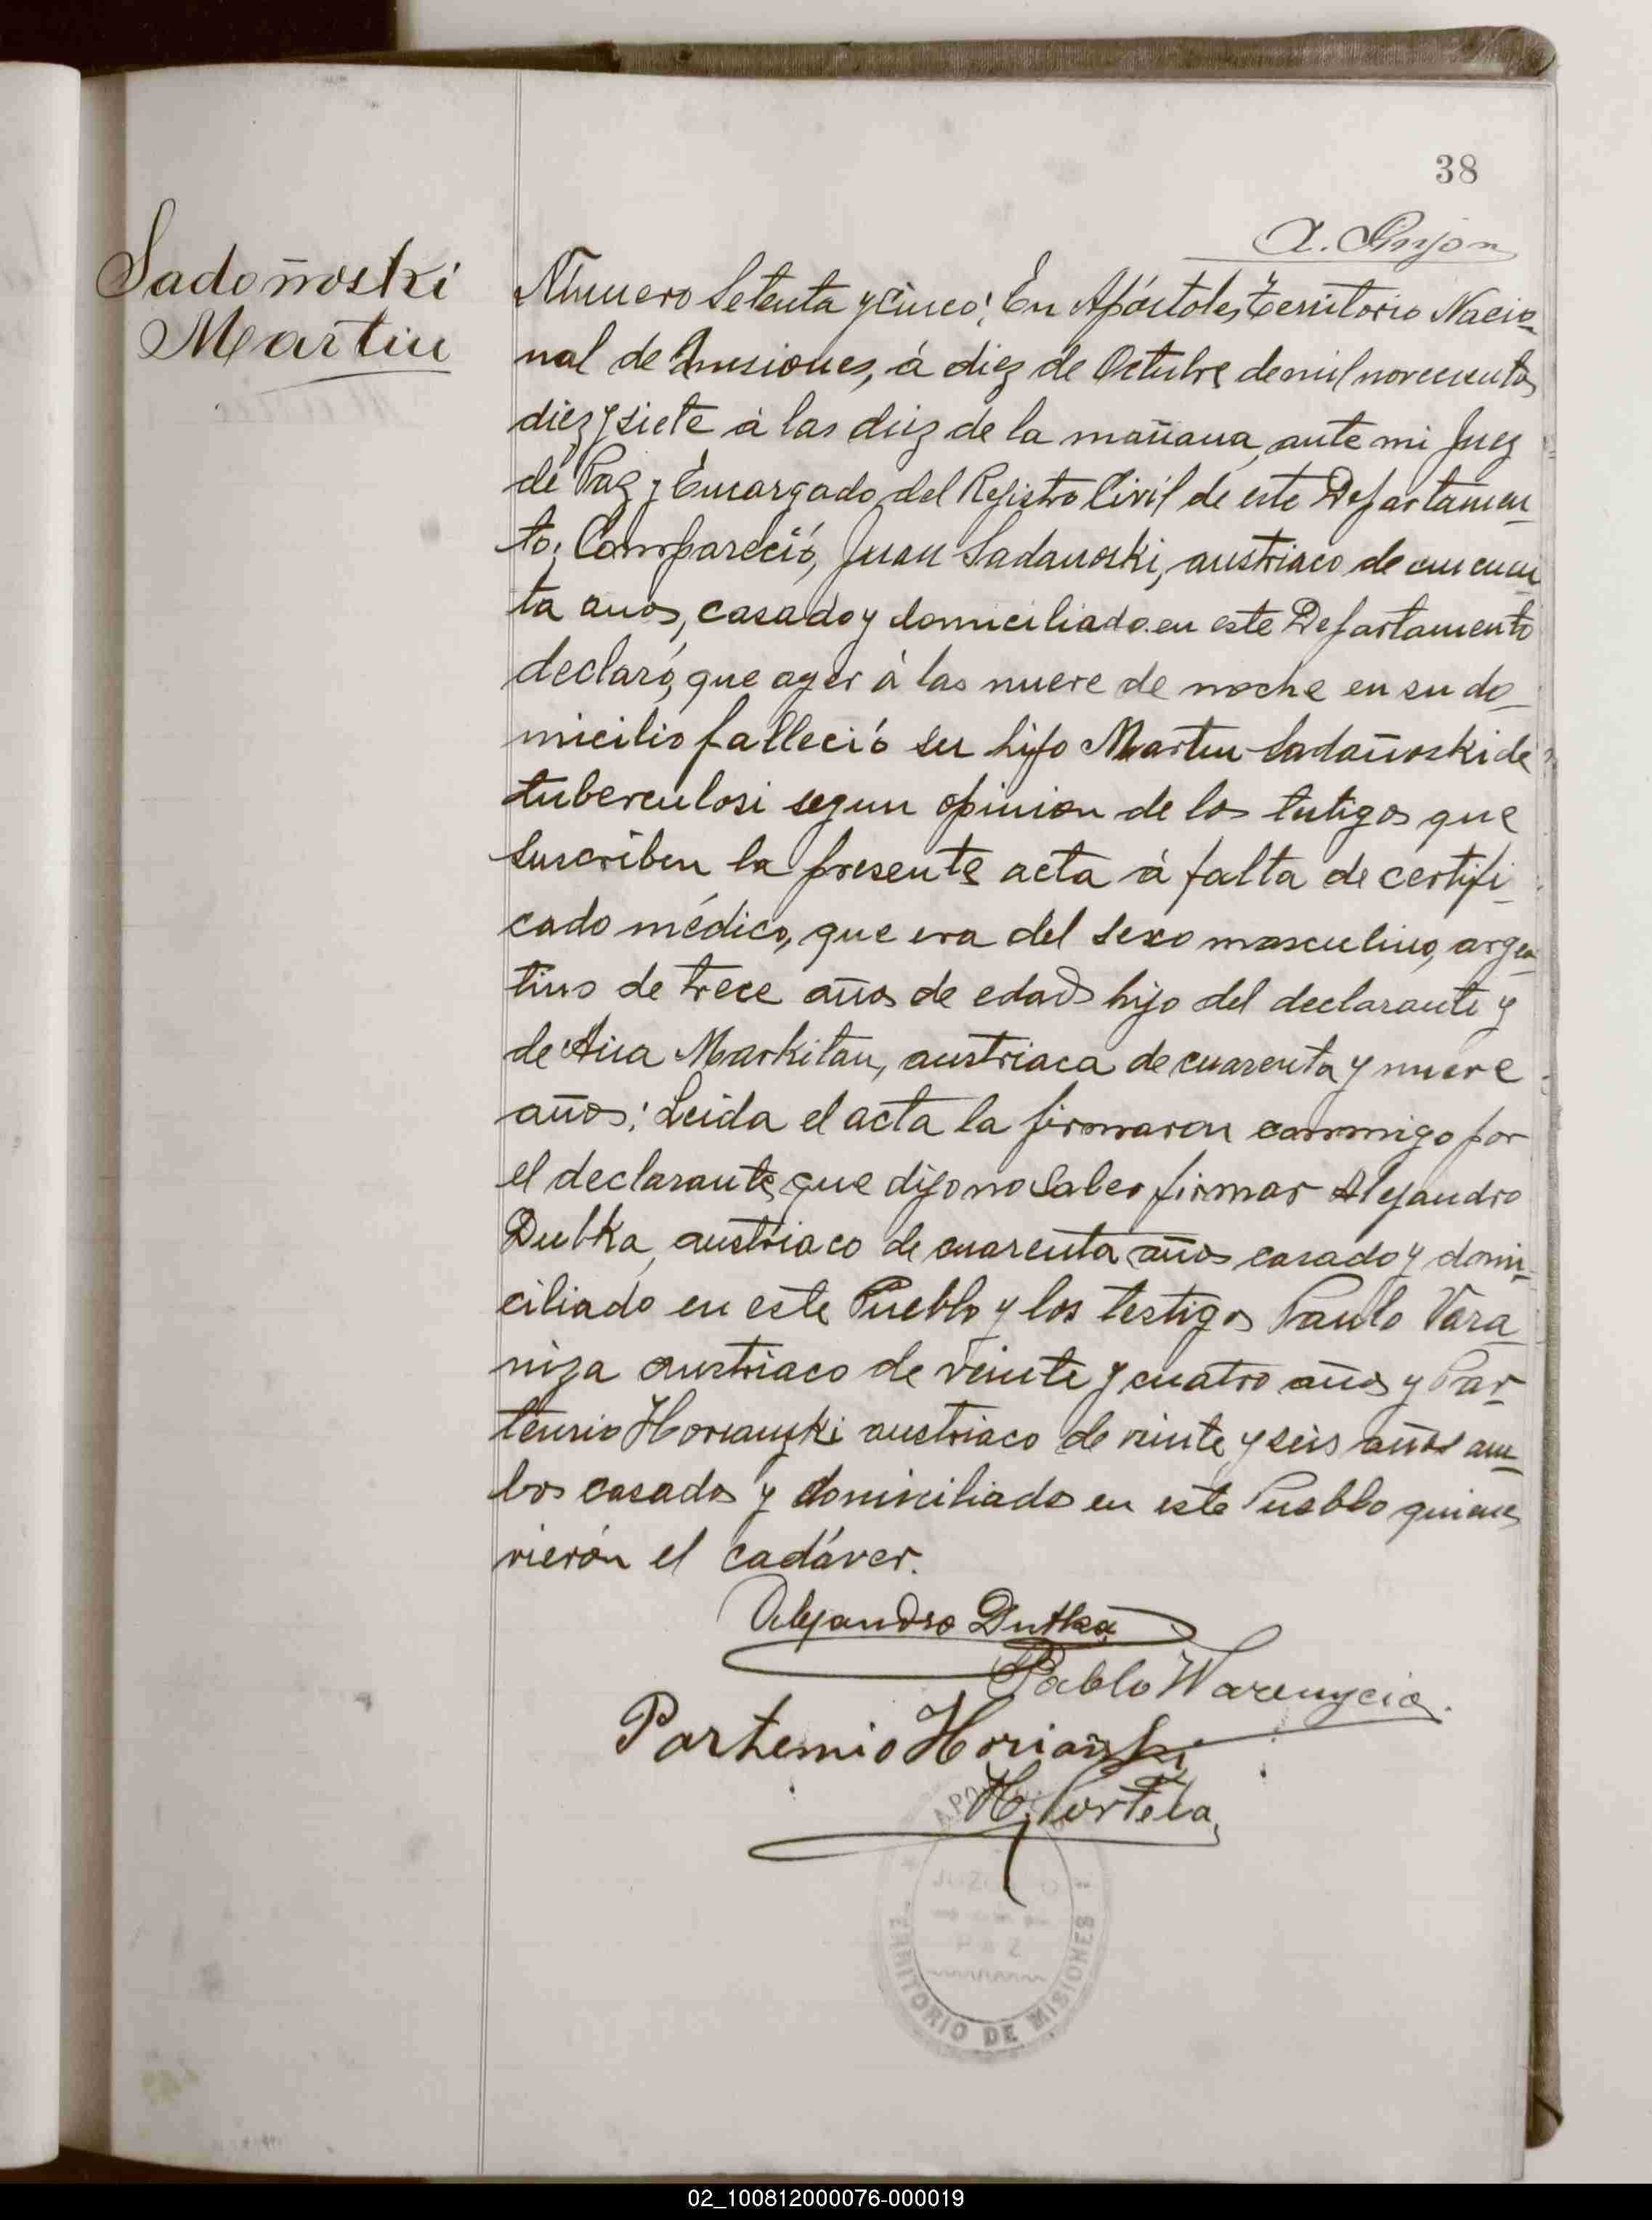 38
Sadoñoski
Martin
Número Setenta y Cinco: En Apóstoles, Territorio Nacio-
nal de Misiones, á diez de Octubre de mil novecientos
diez y siete á las diez de la mañana, ante mi Juez
de Paz y Encargado del Registro Civil de este Departamen-
to; Compareció, Juan Sadanoski, austriaco de cincuen
ta anos, casado y domiciliado en este Departamento
declaró, que ayer á las nueve de noche en su do-
micilio falleció su hijo Martin Sadañoski de
tuberculosi segun opinion de los testigos que
suscriben la presente acta á falta de certifi-
cado médico, que era del sexo masculino, argen-
tino de trece años de edad hijo del declarante y
de Ana Markitan, austriaca de cuarenta y nueve
años: Leida el acta la firmaron conmigo por
el declarante que dijo no saber firmar Alejandro
Dutka, austriaco de cuarenta años casado y domi-
ciliado en este Pueblo y los testigos Paulo Vara
niza austriaco de veinte y cuatro años y Par-
tenio Horianski austriaco de veinte y seis años am-
bos casados y domiciliados en este Pueblo quienes
vierón el cadáver.
Alejandro Dutka
Pablo Warenycia.
Partemio Horianski
H. Portela
JUZ O
PAZ
TERRITORIO DE MISIONES
02_100812000076-000019